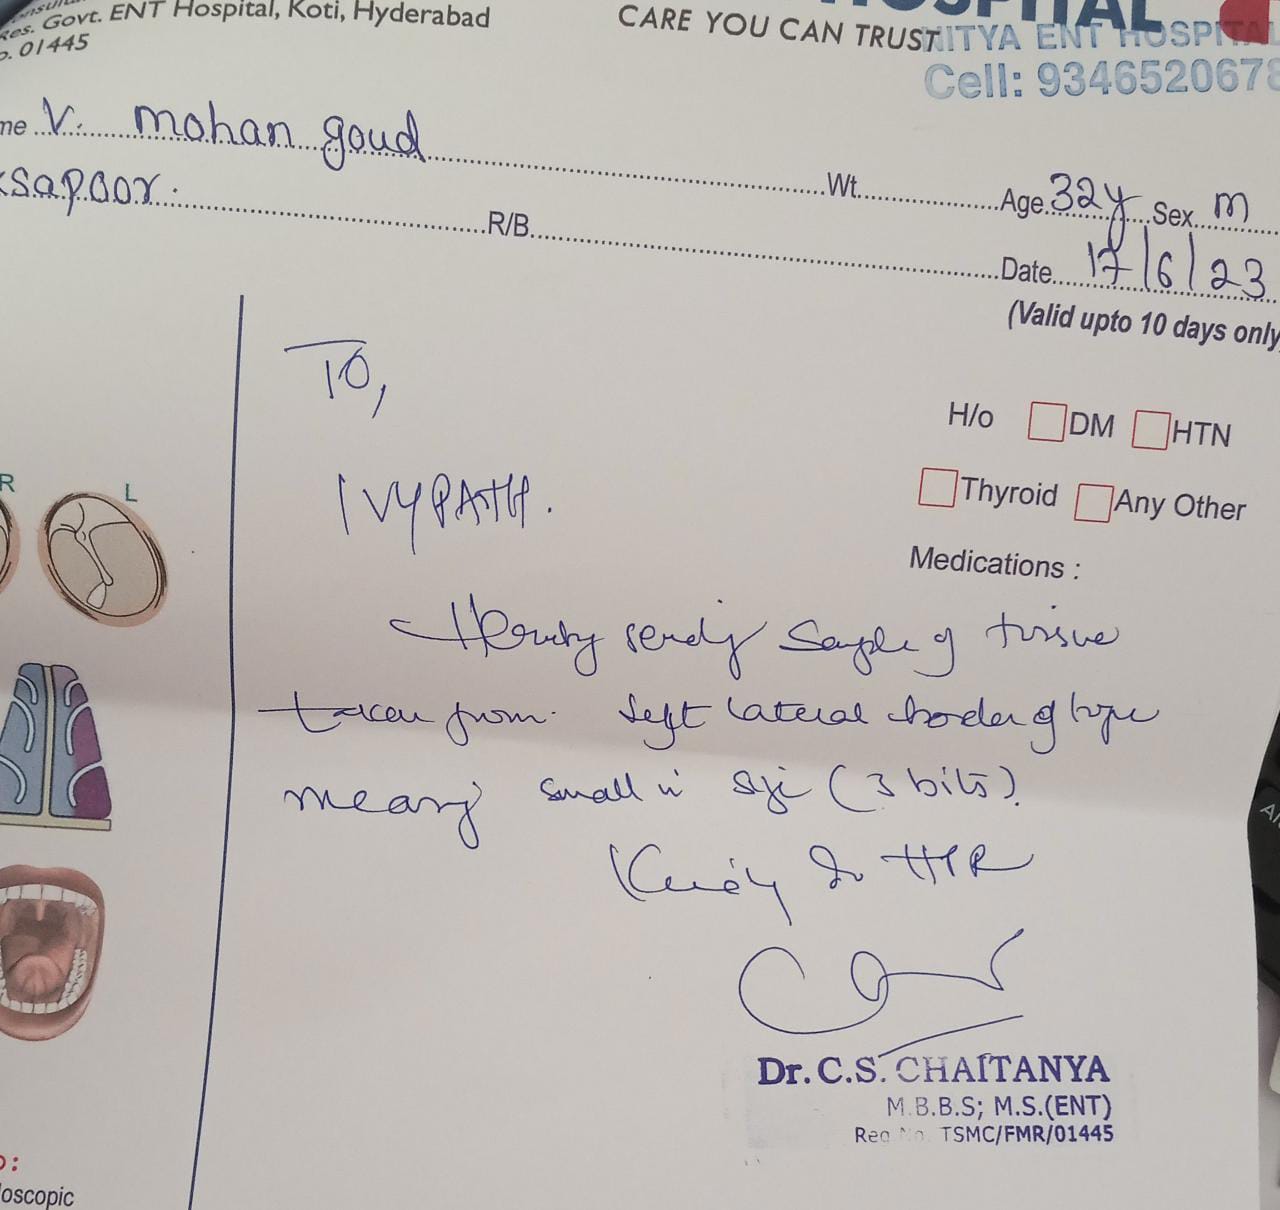 Res. Govt. ENT Hospital, Koti, Hyderabad
01445
HOSPITAL
CARE YOU CAN TRUST
NITYA ENT HOSPITAL
Cell: 9346520678
me V. mohan goud Wt. Age 32y Sex m
sapoor. R/B. Date 17/6/23
(Valid upto 10 days only
To,
IVYPATH.
H/o DM HTN
Thyroid Any Other
Medications :
R L
sample of tissue
taken from left lateral border of
small in size (3 bits).
Kindly do HPR
Dr. C.S. CHAITANYA
M.B.B.S; M.S.(ENT)
Reg No. TSMC/FMR/01445
oscopic